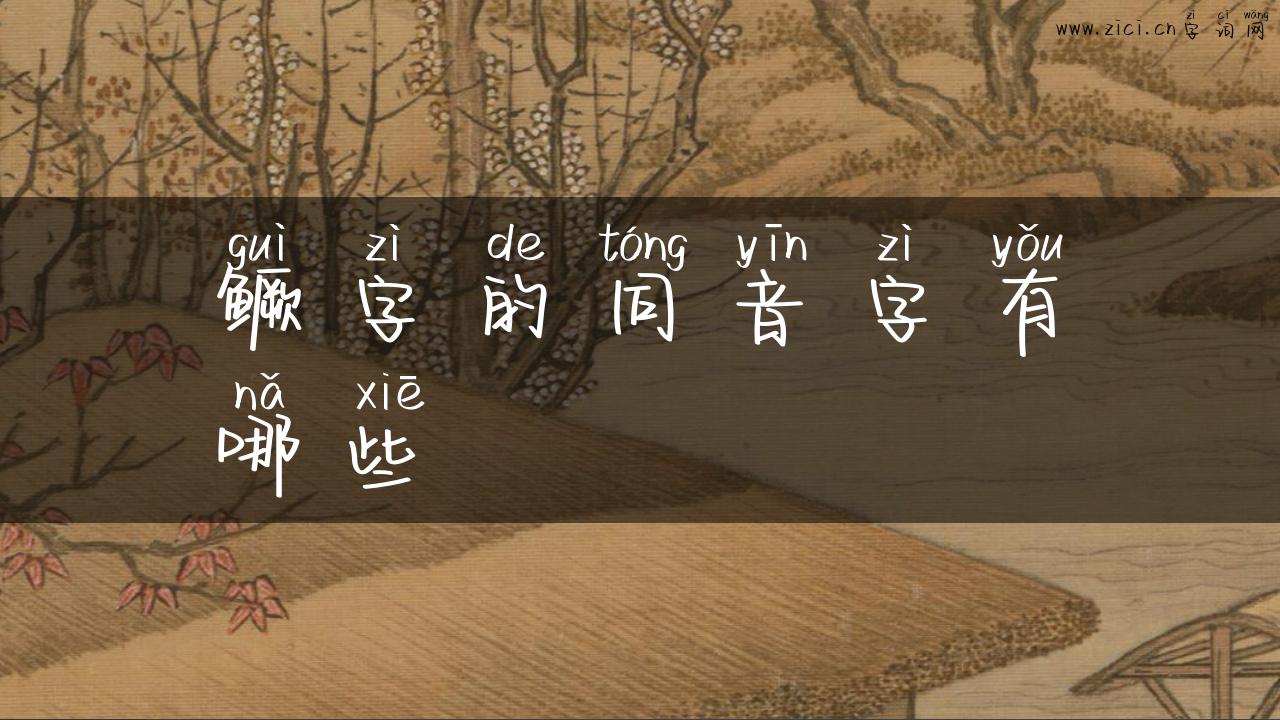 zì cí wǎng
www.zici.cn字词网
guì zì de tóng yīn zì yǒu
鳜字的同音字有
nǎ xiē
哪些